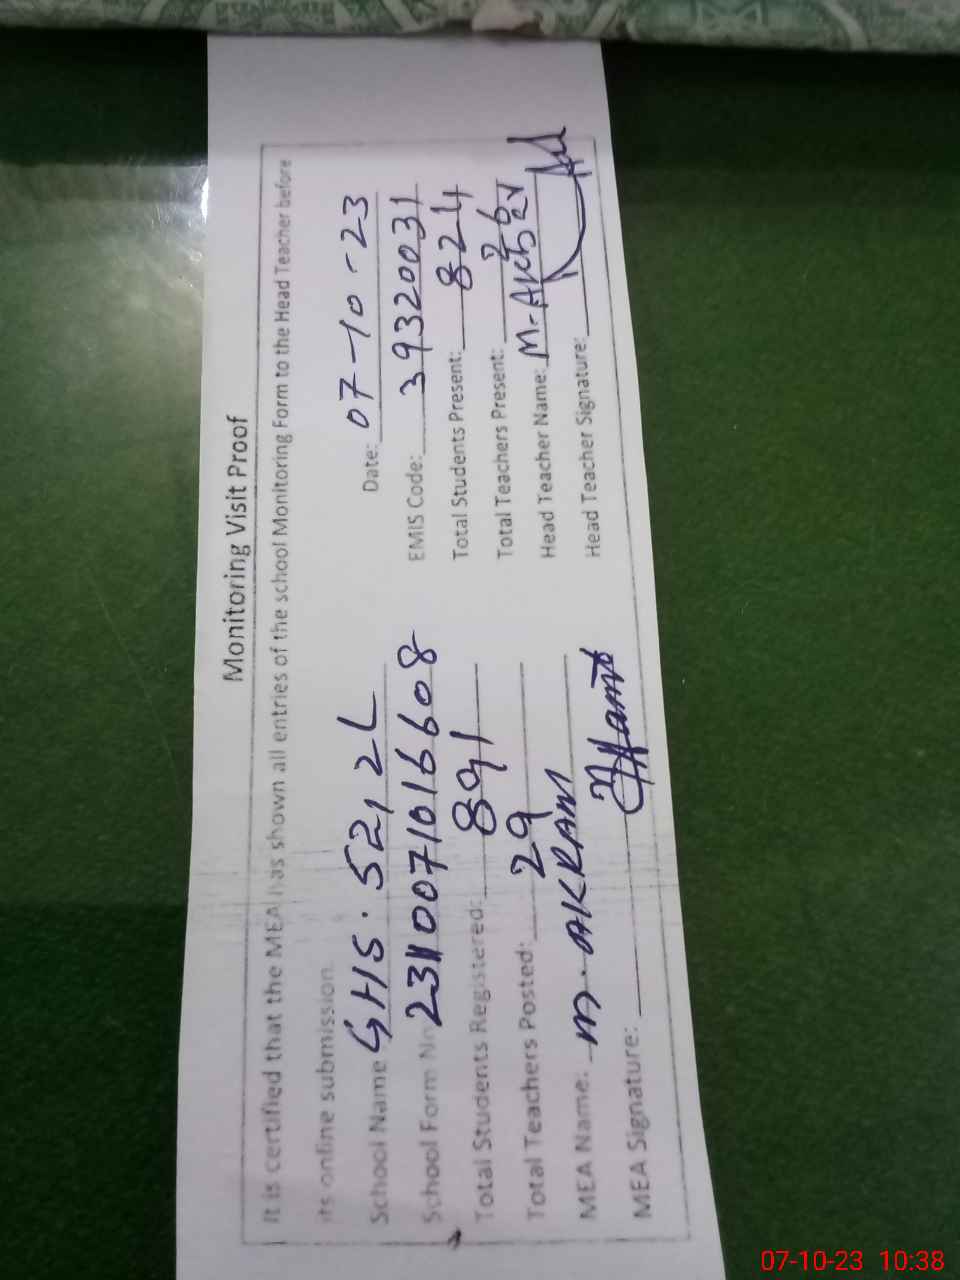 Monitoring Visit Proof
It is certified that the MEA has shown all entries of the school Monitoring Form to the Head Teacher before
its online submission.
School Name GHS. 52/2L Date: 07-10-23
School Form No EMIS Code: 39320031
Total Students Registered: 891 Total Students Present: 824
Total Teachers Posted: 29 Total Teachers Present: 26
MEA Name: M. AKRAM Head Teacher Name: M-Akber
MEA Signature: Head Teacher Signature:
07-10-23 10:38